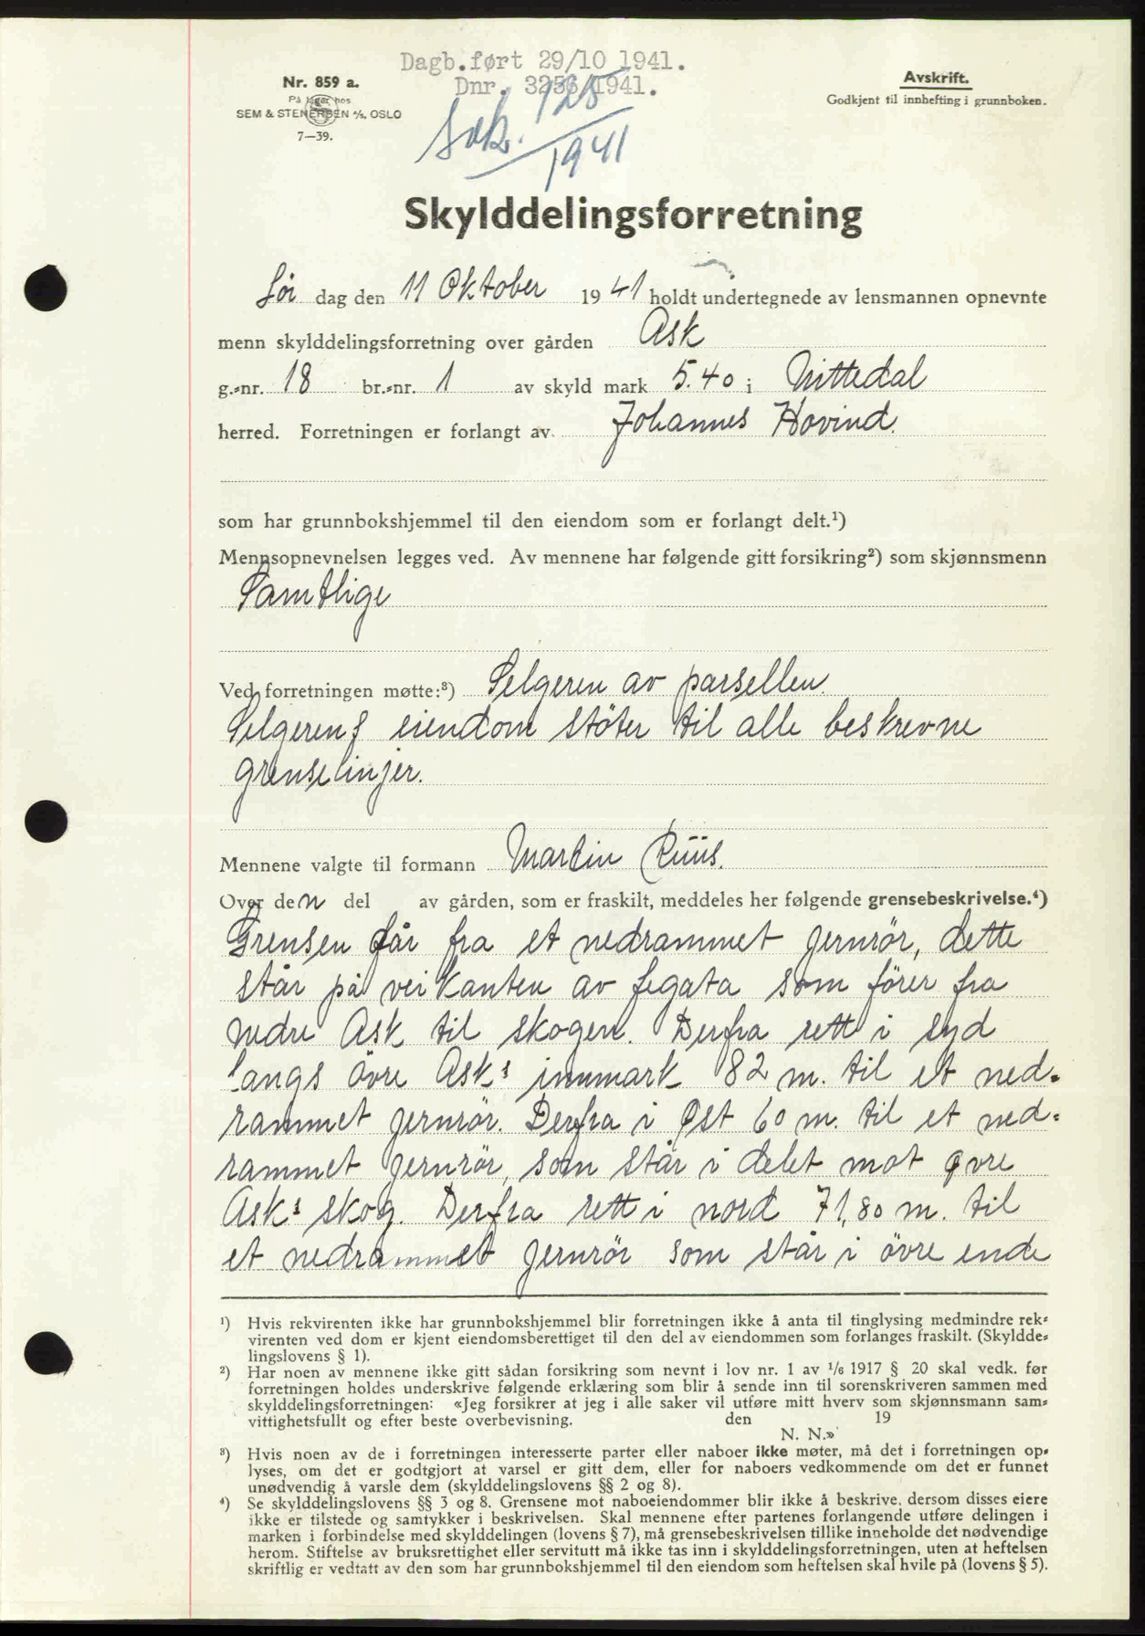 Dagb.ført 29/10 1941.
Dnr. 3256/1941.
Nr. 859 a.
På lager hos
SEM & STENERSEN A/S, OSLO
7—39.
Avskrift.
Godkjent til innhefting i grunnboken.
125
1941
Skylddelingsforretning
Lør dag den 11 Oktober 1941 holdt undertegnede av lensmannen opnevnte
menn skylddelingsforretning over gården Ask
g.=nr. 18 br.=nr. 1 av skyld mark 5.40 i Nittedal
herred. Forretningen er forlangt av Johannes Hovind.
som har grunnbokshjemmel til den eiendom som er forlangt delt.¹)
Mennsopnevnelsen legges ved. Av mennene har følgende gitt forsikring²) som skjønnsmenn
Samtlige
Ved forretningen møtte:³) Selgeren av parsellen.
Selgerens eiendom støter til alle beskrevne
grenselinjer.
Mennene valgte til formann Martin Ruus.
Over den del av gården, som er fraskilt, meddeles her følgende grensebeskrivelse.⁴)
Grensen går fra et nedrammet jernrör, dette
står på veikanten av fegata som förer fra
nedre Ask til skogen. Derfra rett i syd
langs övre Ask's innmark 82 m. til et ned=
rammet jernrör. Derfra i Øst 60 m. til et ned=
rammet jernrör, som står i delet mot øvre
Ask's skog. Derfra rett i nord 71,80 m. til
et nedrammet jernrör som står i övre ende
¹) Hvis rekvirenten ikke har grunnbokshjemmel blir forretningen ikke å anta til tinglysing medmindre rek=
virenten ved dom er kjent eiendomsberettiget til den del av eiendommen som forlanges fraskilt. (Skyldde=
lingslovens § 1).
²) Har noen av mennene ikke gitt sådan forsikring som nevnt i lov nr. 1 av ¹/₆ 1917 § 20 skal vedk. før
forretningen holdes underskrive følgende erklæring som blir å sende inn til sorenskriveren sammen med
skylddelingsforretningen: «Jeg forsikrer at jeg i alle saker vil utføre mitt hverv som skjønnsmann sam=
vittighetsfullt og efter beste overbevisning. den 19
N. N.»
³) Hvis noen av de i forretningen interesserte parter eller naboer ikke møter, må det i forretningen op=
lyses, om det er godtgjort at varsel er gitt dem, eller for naboers vedkommende om det er funnet
unødvendig å varsle dem (skylddelingslovens §§ 2 og 8).
⁴) Se skylddelingslovens §§ 3 og 8. Grensene mot naboeiendommer blir ikke å beskrive, dersom disses eiere
ikke er tilstede og samtykker i beskrivelsen. Skal mennene efter partenes forlangende utføre delingen i
marken i forbindelse med skylddelingen (lovens § 7), må grensebeskrivelsen tillike inneholde det nødvendige
herom. Stiftelse av bruksrettighet eller servitutt må ikke tas inn i skylddelingsforretningen, uten at heftelsen
skriftlig er vedtatt av den som har grunnbokshjemmel til den eiendom som heftelsen skal hvile på (lovens § 5).